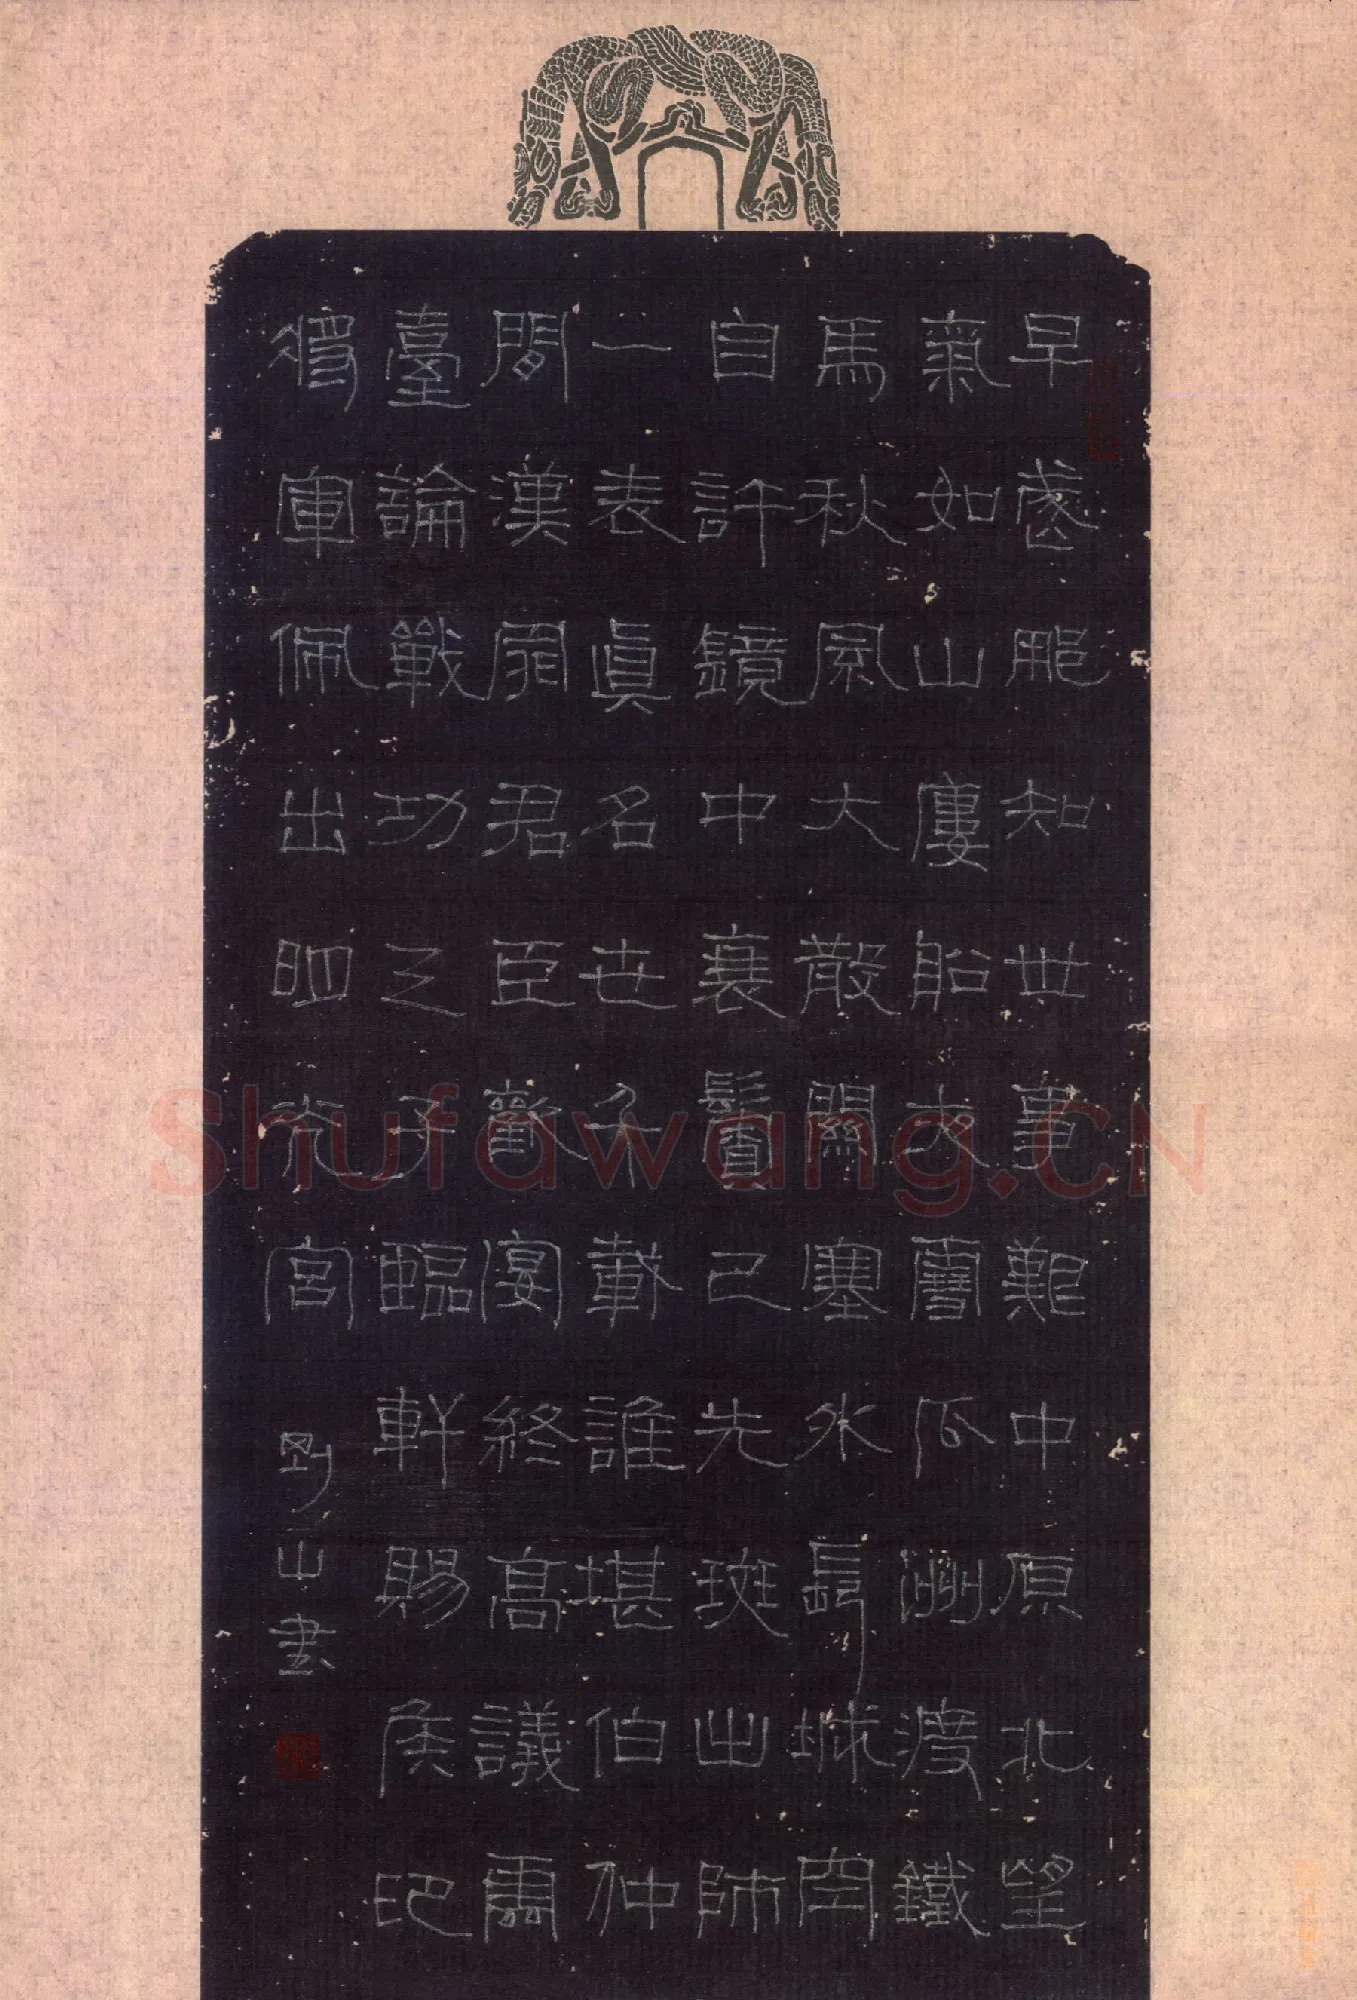 早歲那知世事艱中原北望
氣如山樓船夜雪瓜洲渡鐵
馬秋風大散關塞外長城空
自許鏡中衰鬢已先斑出師
一表真名世千載誰堪伯仲
間漢家君臣歡宴終高議雲
臺論戰功天子臨軒賜侯印
將軍佩出明光宮
剛山書
Shufawang.CN